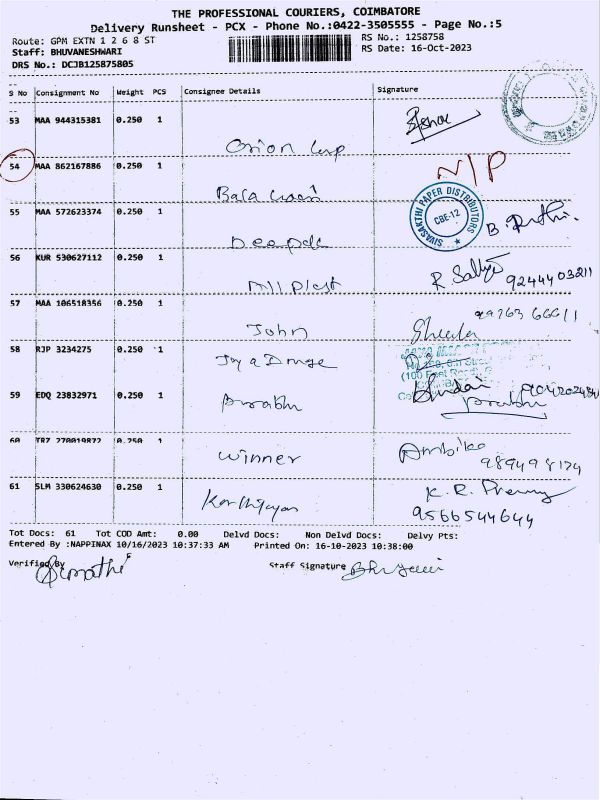 THE PROFESSIONAL COURIERS, COIMBATORE
Delivery Runsheet - PCX - Phone No.:0422-3505555 - Page No.:5
Route: GPM EXTN 1 2 6 8 ST
RS No.: 1258758
Staff: BHUVANESHWARI
RS Date: 16-Oct-2023
DRS No.: DCJB125875805
S No Consignment No Weight PCS Consignee Details Signature
53 MAA 944315381 0.250 1
Orion
54 MAA 862167886 0.250 1 N/P
Bala
SIVASAKTHI PAPER DISTRIBUTORS
CBE-12
55 MAA 572623374 0.250 1
Deepak
56 KUR 530627112 0.250 1
9244403211
57 MAA 106518356 0.250 1
John
58 RJP 3234275 0.250 1
Jaya
59 EDQ 23832971 0.250 1
Prabhu
60 TRZ 270019872 0.250 1
Winner
Ambika
9894198174
61 SLM 330624630 0.250 1
Karthigayan
K. R.
9566544644
Tot Docs: 61 Tot COD Amt: 0.00 Delvd Docs: Non Delvd Docs: Delvy Pts:
Entered By :NAPPINAX 10/16/2023 10:37:33 AM Printed On: 16-10-2023 10:38:00
Verified By
Staff Signature